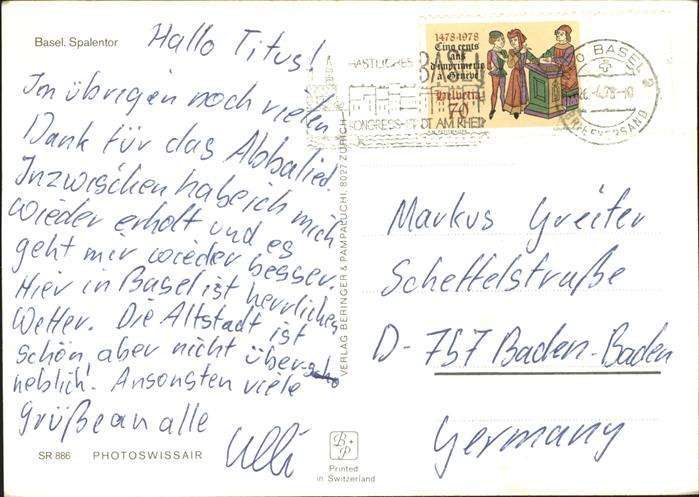 Basel. Spalentor
Hallo Titus!
Im übrigen noch vielen
Dank für das Abbalied.
Inzwischen habe ich mich
wieder erholt und es
geht mir wieder besser.
Hier in Basel ist herrliches
Wetter. Die Altstadt ist
schön aber nicht über-
heblich! Ansonsten viele
Grüße an alle
Ulli
SR 886 PHOTOSWISSAIR
VERLAG BERINGER & PAMPALUCHI, 8027 ZÜRICH
B + P
Printed
in Switzerland
1478-1978
Cinq cents
ans
d'imprimerie
à Genève
Helvetia
70
BASEL
KONGRESS-STADT AM RHEIN
BASEL 2
BRIEFVERSAND
Markus Greiter
Scheffelstraße
D-757 Baden-Baden
Germany